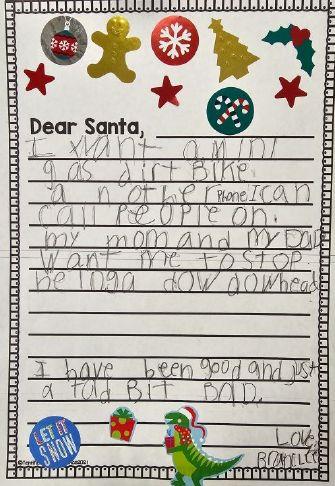 Dear Santa,
I want a mini
gas dirt Bike.
a nother Phone I can
call PeoPle on.
my mom and My DaD
want me to stop
be inga dow dowhead
I have been good and just
a tad BIT BAD.
LET IT
SNOW
Love